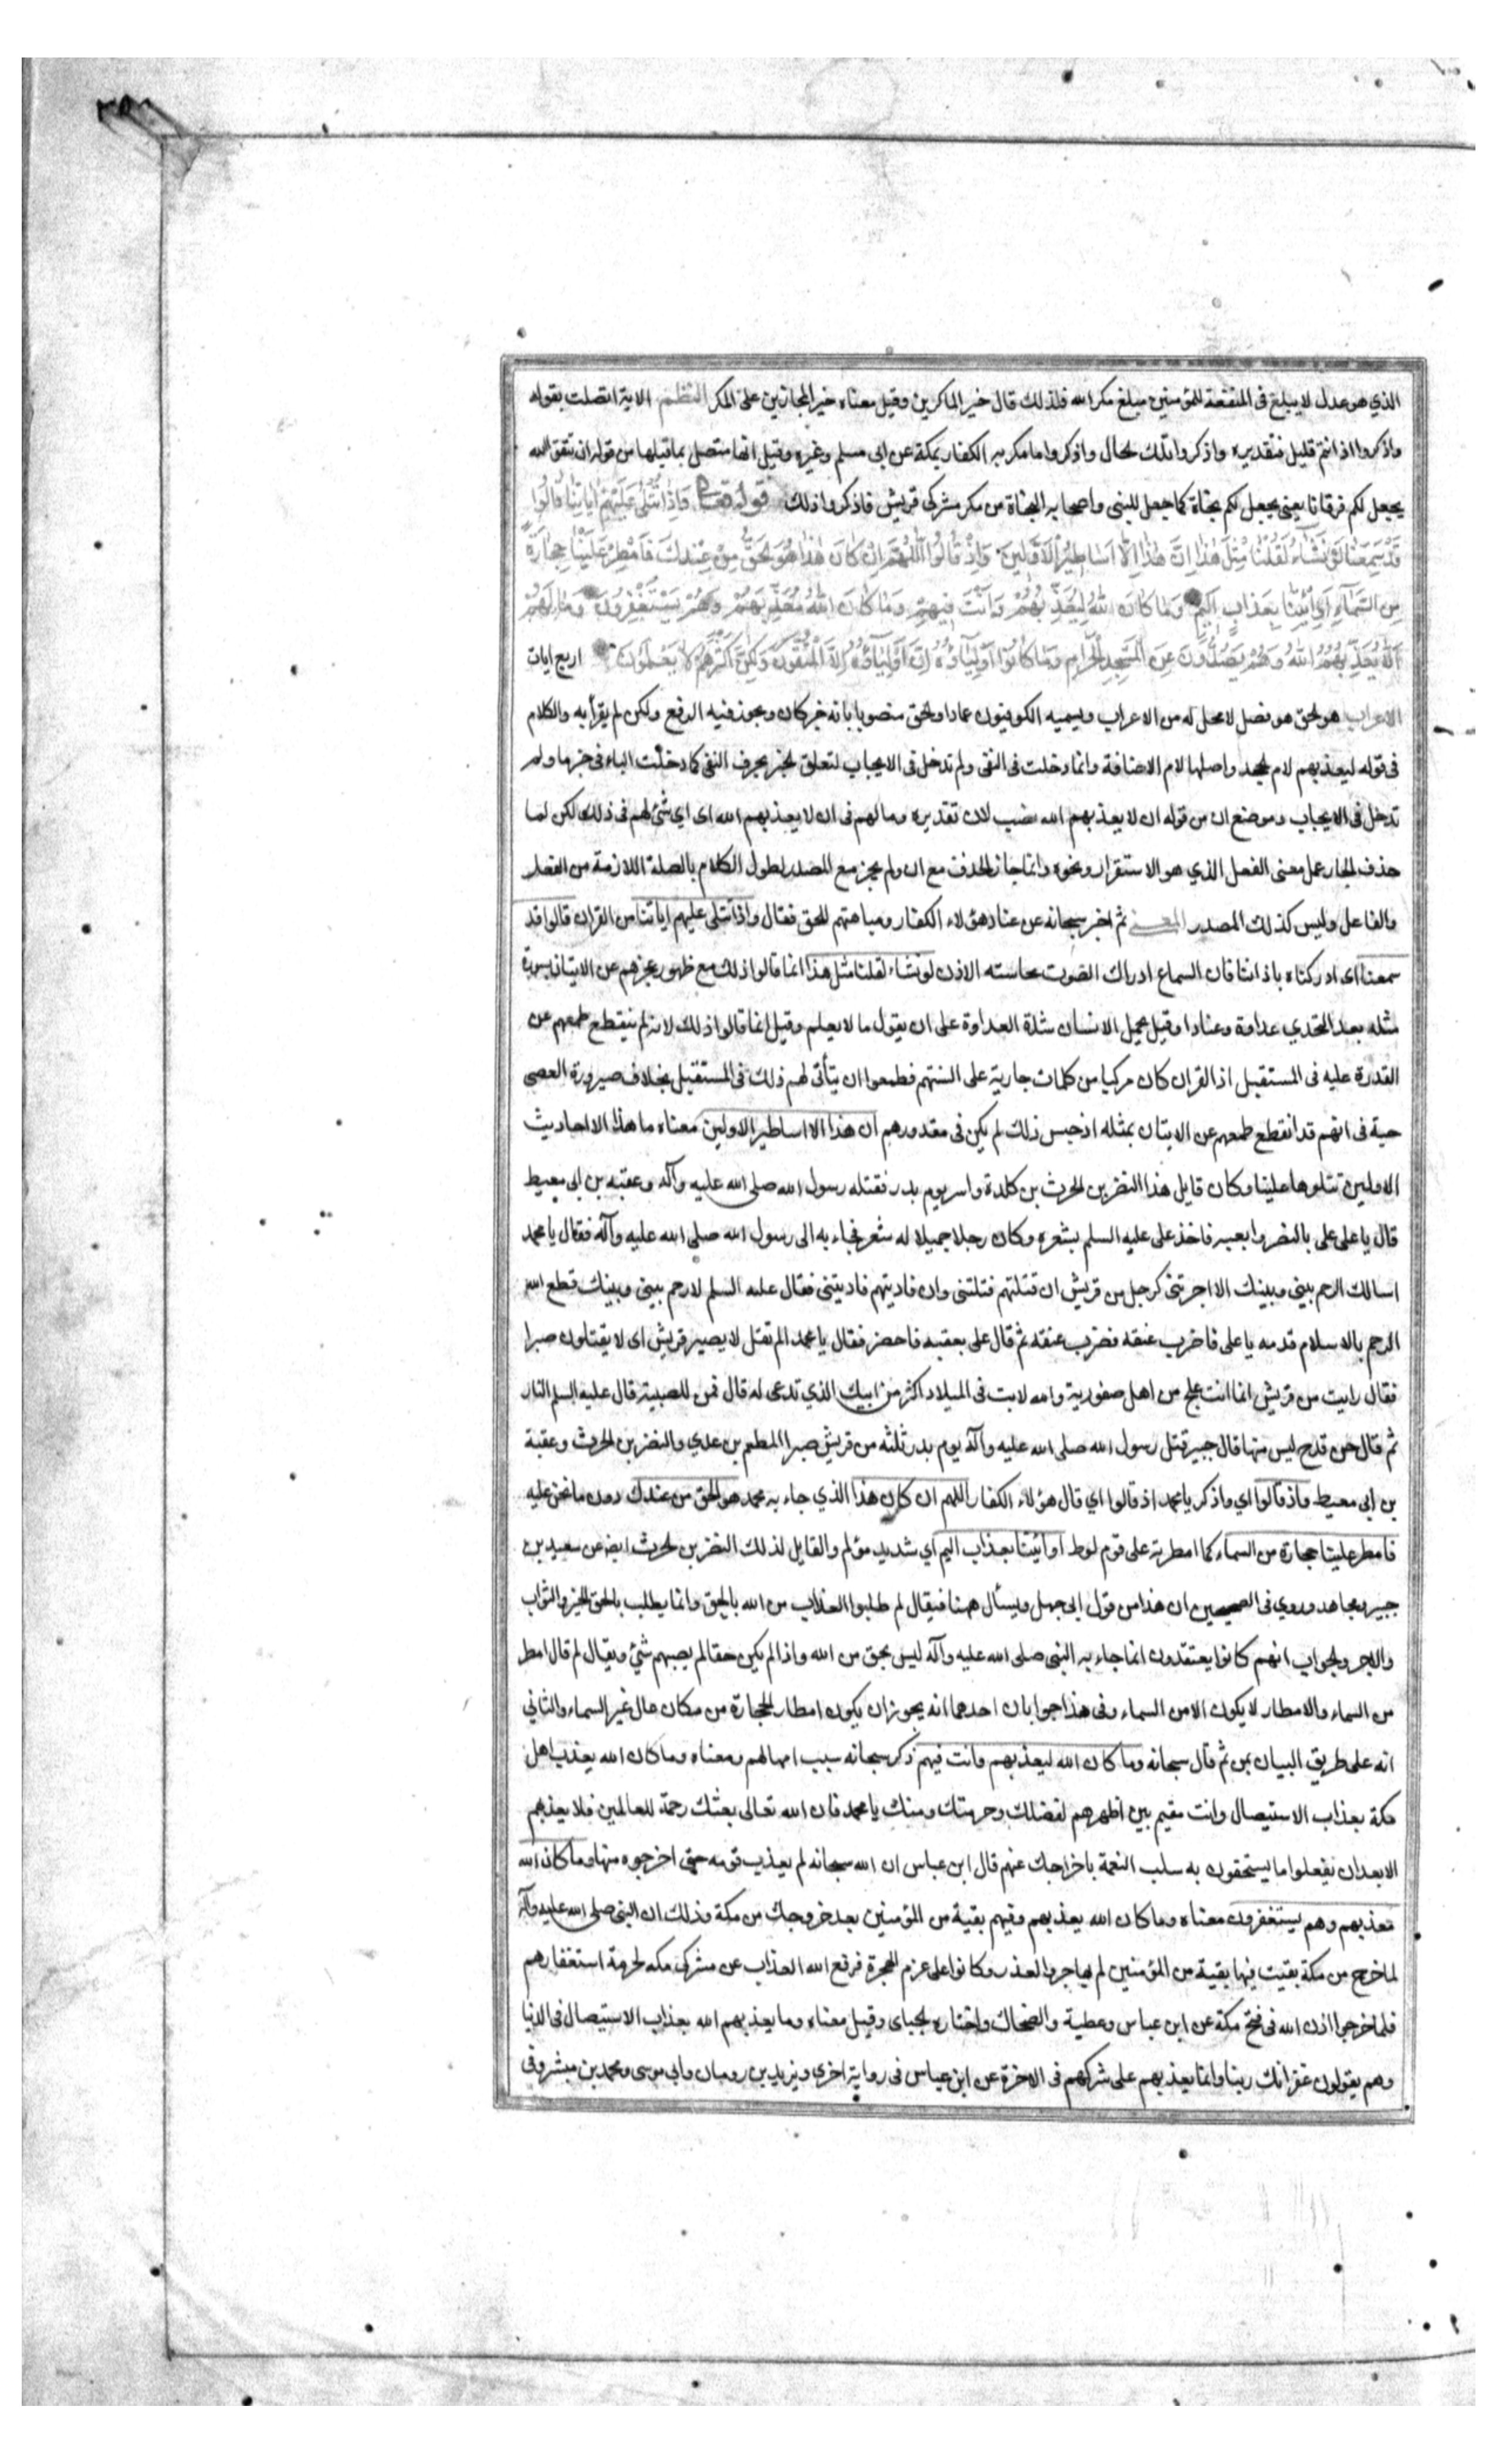 الذي هو عدل لا يبلغ فى المنفعة للمؤمنين مبلغ مكر الله فلذلك قال خير الماكرين وقيل معناه خير المجازين على المكر النظم الاية اتصلت بقوله
واذكروا اذ انتم قليل فتقديره واذكروا تلك الحال واذكروا ما مكر به الكفار بمكة عن ابى مسلم وغيره وقيل انها متصل بما قبلها من قوله ان تتقوا الله
يجعل لكم فرقانا يعنى يجعل لكم نجاة كما جعل للنبى واصحابه النجاة من مكر مشركى قريش فاذكروا ذلك قوله تعالى وَاِذَا تُتْلٰى عَلَيْهِمْ اٰيَاتُنَا قَالُوا
قَدْ سَمِعْنَا لَوْ نَشَاءُ لَقُلْنَا مِثْلَ هٰذَا اِنْ هٰذَا اِلَّا اَسَاطِيرُ الْاَوَّلِينَ وَاِذْ قَالُوا اللّٰهُمَّ اِنْ كَانَ هٰذَا هُوَ الْحَقَّ مِنْ عِنْدِكَ فَاَمْطِرْ عَلَيْنَا حِجَارَةً
مِنَ السَّمَاءِ اَوِ ائْتِنَا بِعَذَابٍ اَلِيمٍ وَمَا كَانَ اللّٰهُ لِيُعَذِّبَهُمْ وَاَنْتَ فِيهِمْ وَمَا كَانَ اللّٰهُ مُعَذِّبَهُمْ وَهُمْ يَسْتَغْفِرُونَ وَمَا لَهُمْ
اَلَّا يُعَذِّبَهُمُ اللّٰهُ وَهُمْ يَصُدُّونَ عَنِ الْمَسْجِدِ الْحَرَامِ وَمَا كَانُوا اَوْلِيَاءَهُ اِنْ اَوْلِيَاؤُهُ اِلَّا الْمُتَّقُونَ وَلٰكِنَّ اَكْثَرَهُمْ لَا يَعْلَمُونَ اربع ايات
الاعراب هو الحق هو فصل لا محل له من الاعراب ويسميه الكوفيون عمادا والحق منصوبا بانه خبر كان ويجوز فيه الرفع ولكن لم يقرأ به واللام
فى قوله ليعذبهم لام الجحد واصلها لام الاضافة وانما دخلت فى النفى ولم تدخل فى الايجاب لتعلق الخبر بحرف النفى كما دخلت الباء فى خبر ما ولم
تدخل فى الايجاب وموضع ان من قوله ان لا يعذبهم الله نصب لان تقديره وما لهم فى ان لا يعذبهم الله اى اي شئ لهم فى ذلك لكن لما
حذف الجار عمل معنى الفعل الذي هو الاستقرار ونحوه وانما جاز الحذف مع ان ولم يجز مع المصدر لطول الكلام بالصلة اللازمة من الفعل
والفاعل وليس كذلك المصدر المعنى ثم اخبر سبحانه عن عناد هؤلاء الكفار ومباهتهم للحق فقال واذا تتلى عليهم اياتنا من القران قالوا قد
سمعنا اى ادركناه باذاننا فان السماع ادراك الصوت بحاسة الاذن لو نشاء لقلنا مثل هذا انما قالوا ذلك مع ظهور عجزهم عن الاتيان بسورة
مثله بعد التحدي عداوة وعنادا وقيل يحمل الانسان شدة العداوة على ان يقول ما لا يعلم وقيل انما قالوا ذلك لانه لم ينقطع طمعهم عن
القدرة عليه فى المستقبل اذ القران كان مركبا من كلمات جارية على السنتهم فطمعوا ان يتأتى لهم ذلك فى المستقبل بخلاف صيرورة العصى
حية فى انهم قد انقطع طمعهم عن الاتيان بمثله اذ جنس ذلك لم يكن فى مقدورهم ان هذا الا اساطير الاولين معناه ما هذا الا احاديث
الاولين تتلوها علينا وكان قايل هذا النضر بن الحرث بن كلدة واسر يوم بدر فقتله رسول الله صلى الله عليه وآله وعقبة بن ابى معيط
قال يا على على بالنضر ابغيه فاخذ على عليه السلم بشعره وكان رجلا جميلا له شعر فجاء به الى رسول الله صلى الله عليه وآله فقال يا محمد
اسالك الرحم بينى وبينك الا اجرتنى كرجل من قريش ان قتلتهم قتلتنى وان فاديتهم فاديتنى فقال عليه السلم لا رحم بينى وبينك قطع الله
الرحم بالاسلام قدمه يا على فاضرب عنقه فضرب عنقه ثم قال على بعقبه فاحضر فقال يا محمد الم تقل لا يصبر قريش اى لا يقتلون صبرا
فقال رايت من قريش انما انت علج من اهل صفورية والله لانت فى الميلاد اكثر من ابيك الذي تدعى له قال فمن للصبية قال عليه السلم النار
ثم قال حن قدح ليس منها قال جبير قتل رسول الله صلى الله عليه وآله يوم بدر ثلثة من قريش صبرا المطعم بن عدي والنضر بن الحرث وعقبة
بن ابى معيط واذ قالوا اي واذكر يا محمد اذ قالوا اي قال هؤلاء الكفار اللهم ان كان هذا الذي جاء به محمد هو الحق من عندك دون ما نحن عليه
فامطر علينا حجارة من السماء كما امطرته على قوم لوط او ائتنا بعذاب اليم اي شديد مؤلم والقايل لذلك النضر بن الحرث ايضا عن سعيد بن
جبير ومجاهد وروي فى الصحيحين ان هذا من قول ابى جهل ويسأل ههنا فيقال لم طلبوا العذاب من الله بالحق وانما يطلب بالحق الخير والثواب
والاجر والجواب انهم كانوا يعتقدون انما جاء به النبى صلى الله عليه وآله ليس بحق من الله واذا لم يكن حقا لم يصبهم شئ ويقال لم قال امطر
من السماء والامطار لا يكون الا من السماء وفى هذا جوابان احدهما انه يجوز ان يكون امطار الحجارة من مكان عال غير السماء والثاني
انه على طريق البيان بمن ثم قال سبحانه وما كان الله ليعذبهم وانت فيهم ذكر سبحانه سبب امهالهم ومعناه وما كان الله يعذب اهل
مكة بعذاب الاستيصال وانت مقيم بين اظهرهم لفضلك وحرمتك ومنك يا محمد فان الله تعالى بعثك رحمة للعالمين فلا يعذبهم
الا بعد ان يفعلوا ما يستحقون به سلب النعمة باخراجك عنهم قال ابن عباس ان الله سبحانه لم يعذب قومه حتى اخرجوه منها وما كان الله
معذبهم وهم يستغفرون معناه وما كان الله يعذبهم وفيهم بقية من المؤمنين بعد خروجك من مكة وذلك ان النبى صلى الله عليه وآله
لما خرج من مكة بقيت فيها بقية من المؤمنين لم يهاجروا لعذر وكانوا على عزم الهجرة فرفع الله العذاب عن مشركى مكه لحرمة استغفارهم
فلما خرجوا اذن الله فى فتح مكة عن ابن عباس وعطية والضحاك واختاره الجباى وقيل معناه وما يعذبهم الله بعذاب الاستيصال فى الدنيا
وهم يقولون غفرانك ربنا وانما يعذبهم على شركهم فى الاخرة عن ابن عباس فى رواية اخرى ويزيد بن رومان وابي موسى ومحمد بن مبشر وفى